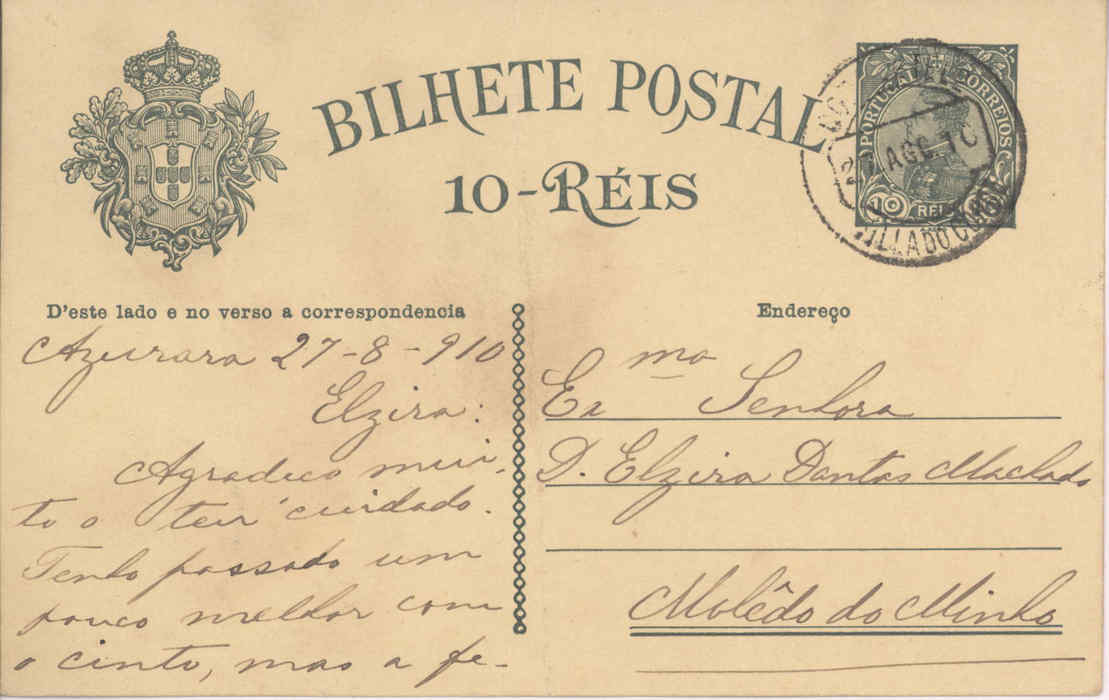 BILHETE POSTAL
10-RÉIS
PORTUGAL CORREIOS
AGO. 10
VILLA DO CONDE
10 REIS
D'este lado e no verso a correspondencia
Azurara 27-8-910
Elzira:
Agradeço mui-
to o teu cuidado.
Tenho passado um
pouco melhor com
o cinto, mas a fe-
Endereço
Exma Senhora
D. Elzira Dantas Machado
Molêdo do Minho